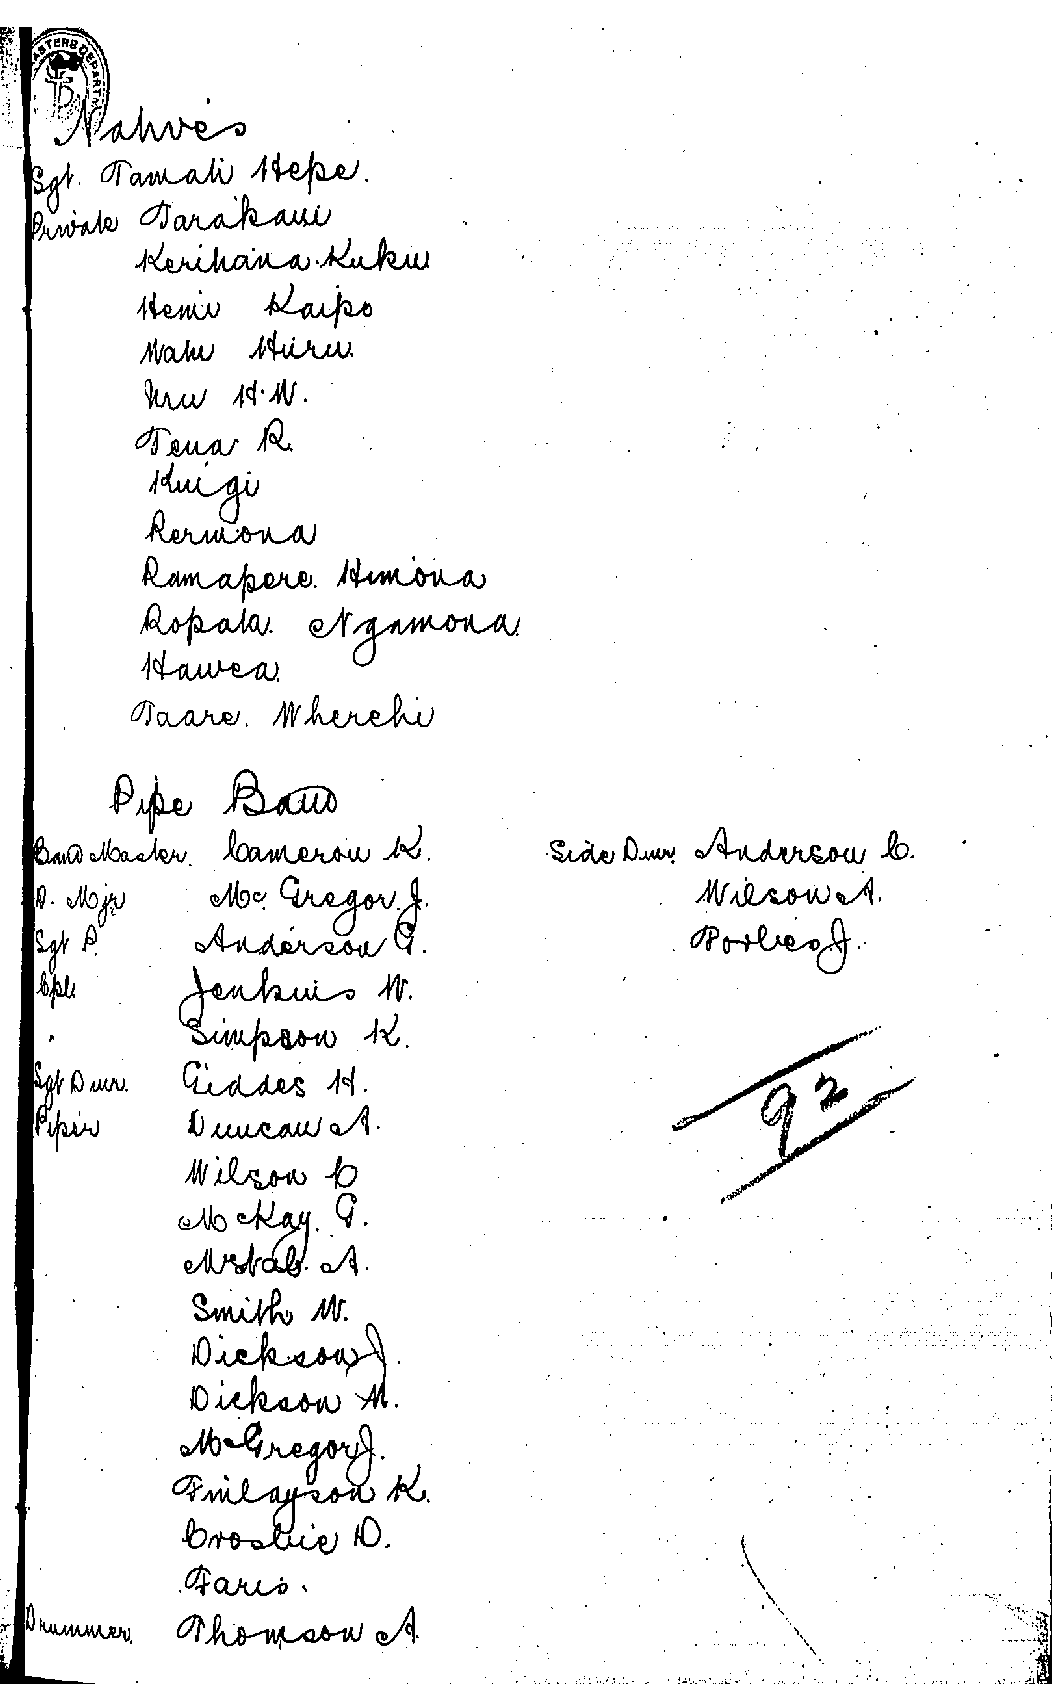 Natives
Sgt. Tamati Hepe.
Private Tarakawi
Kerihana Kuku
Hemi Kaipo
Wahu Huru
Uru H. W.
Tena R.
Kuigi
Rermona
Ramapere. Himona
Ropata. Ngamona.
Hawea.
Taare. Wherehi
Pipe Band
Band Master. Cameron K.
D. Mjr McGregor. J.
Sgt P. Anderson G.
Cpl. Jenkins W.
" Simpson K.
Sgt Dmr. Geddes H.
Piper Duncan A.
Wilson C
McKay. G.
McNab. A.
Smith W.
Dickson J.
Dickson M.
McGregor J.
Finlayson K.
Crosbie D.
Faris.
Drummer. Thomson A
Side Dmr. Anderson C.
Wilson A.
Forbes J.
92